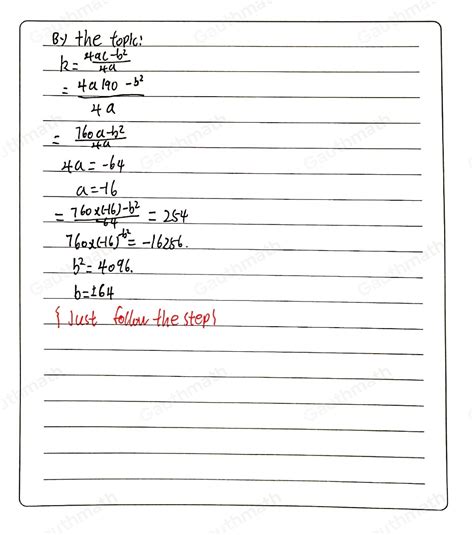 By the topic:
k = (4ac-b²)/(4a)
= (4a190-b²)/(4a)
= (760a-b²)/(4a)
4a = -64
a = -16
= (760×(-16)-b²)/(-64) = 254
760×(-16)-b² = -16256.
b² = 4096.
b = ±64
{Just follow the step}
Gauthmath